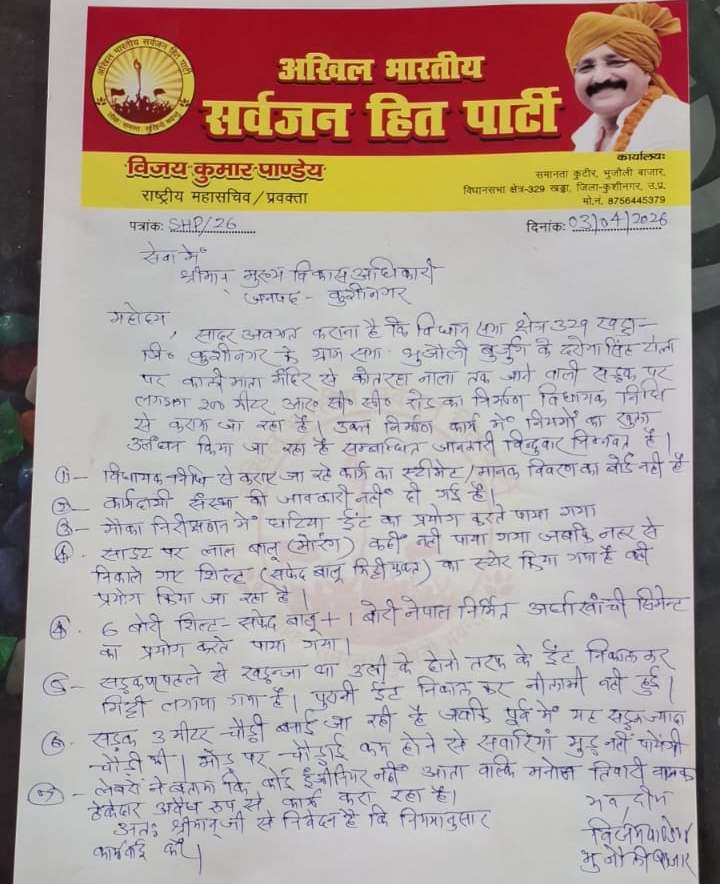 अखिल भारतीय सर्वजन हित पार्टी
अखिल भारतीय
सर्वजन हित पार्टी
विजय कुमार पाण्डेय
राष्ट्रीय महासचिव/प्रवक्ता
कार्यालयः
समानता कुटीर, भुजौली बाजार,
विधानसभा क्षेत्र-329 खड्डा, जिला-कुशीनगर, उ.प्र.
मो.नं. 8756445379
पत्रांकः SHP/26
दिनांकः 03/04/2026
सेवा में
श्रीमान मुख्य विकास अधिकारी
जनपद - कुशीनगर
महोदय,
सादर अवगत कराना है कि विधान सभा क्षेत्र 329 खड्डा-
जि० कुशीनगर के ग्राम सभा भुजौली बुजुर्ग के दरोगा सिंह टोला
पर काली माता मंदिर से कोतरहा नाला तक जाने वाली सड़क पर
लगभग 200 मीटर आर० सी० सी० रोड का निर्माण विधायक निधि
से कराया जा रहा है। उक्त निर्माण कार्य में नियमों का खुला
उलंघन किया जा रहा है सम्बन्धित जानकारी बिन्दुवार निम्नवत है।
① - विधायक निधि से कराए जा रहे कार्य का स्टीमेट/मानक विवरण का बोर्ड नही है
② - कार्यदायी संस्था की जानकारी नहीं दी गई है।
③ - मौका निरीक्षण में घटिया ईंट का प्रयोग करते पाया गया
④ - साइट पर लाल बालू (मोरंग) कहीं नही पाया गया जबकि नहर से
निकाले गए शिल्ट (सफेद बालू मिट्टी युक्त) का स्टोर किया गया है वही
प्रयोग किया जा रहा है।
④. 6 बोरी शिल्ट- सफेद बालू + 1 बोरी नेपाल निर्मित अर्घाखांची सिमेन्ट
का प्रयोग करते पाया गया।
⑤ - सड़क पर पहले से खड़न्जा था उसी के दोनो तरफ के ईंट निकाल कर
मिट्टी लगाया गया है। पुरानी ईंट निकाल कर नीलामी नही हुई।
⑥. सड़क 3 मीटर चौड़ी बनाई जा रही है जबकि पूर्व में यह सड़क ज्यादा
चौड़ी थी। मोड़ पर चौड़ाई कम होने से सवारियां मुड़ नहीं पायेंगी
⑦ - लेबरों ने बताया कि कोई इंजीनियर नहीं आता बल्कि मनोज तिवारी नामक
ठेकेदार अवैध रूप से कार्य करा रहा है।
अतः श्रीमान् जी से निवेदन है कि नियमानुसार
कार्यवाई करें।
भवदीय
विजय पाण्डेय
भुजौली बाजार